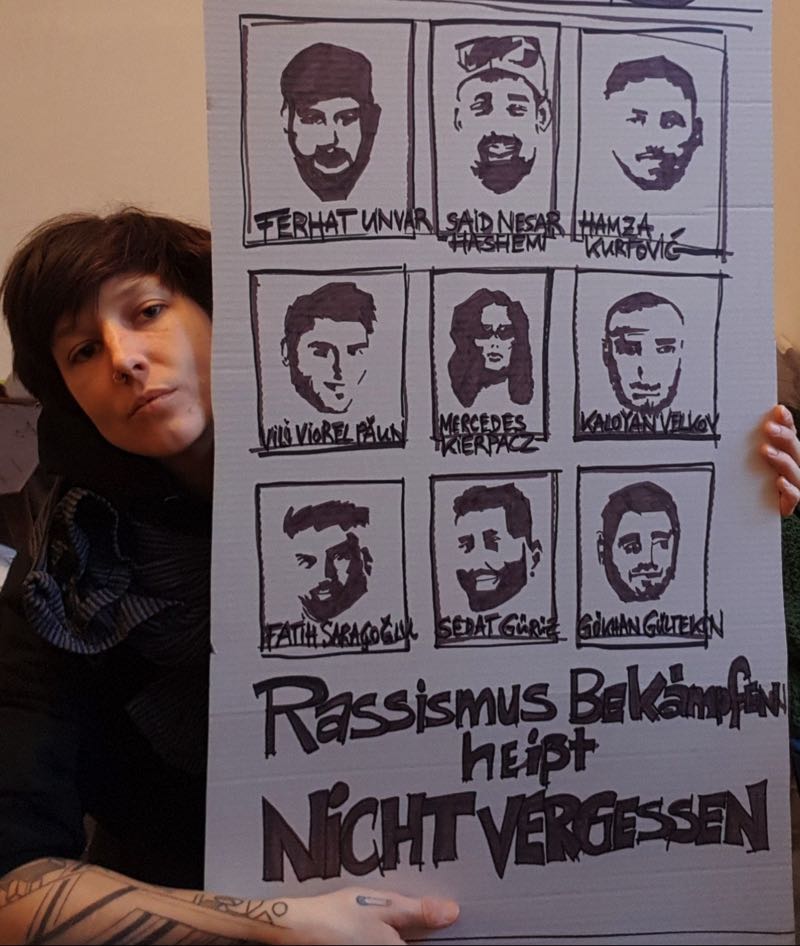 FERHAT UNVAR
SAID NESAR
HASHEMI
HAMZA
KURTOVIĆ
VILI VIOREL PĂUN
MERCEDES
KIERPACZ
KALOYAN VELKOV
FATIH SARAÇOĞLU
SEDAT GÜRÜZ
GÖKHAN GÜLTEKIN
RASSISMUS BEKÄMPFEN
heißt
NiCHT VERGESSEN